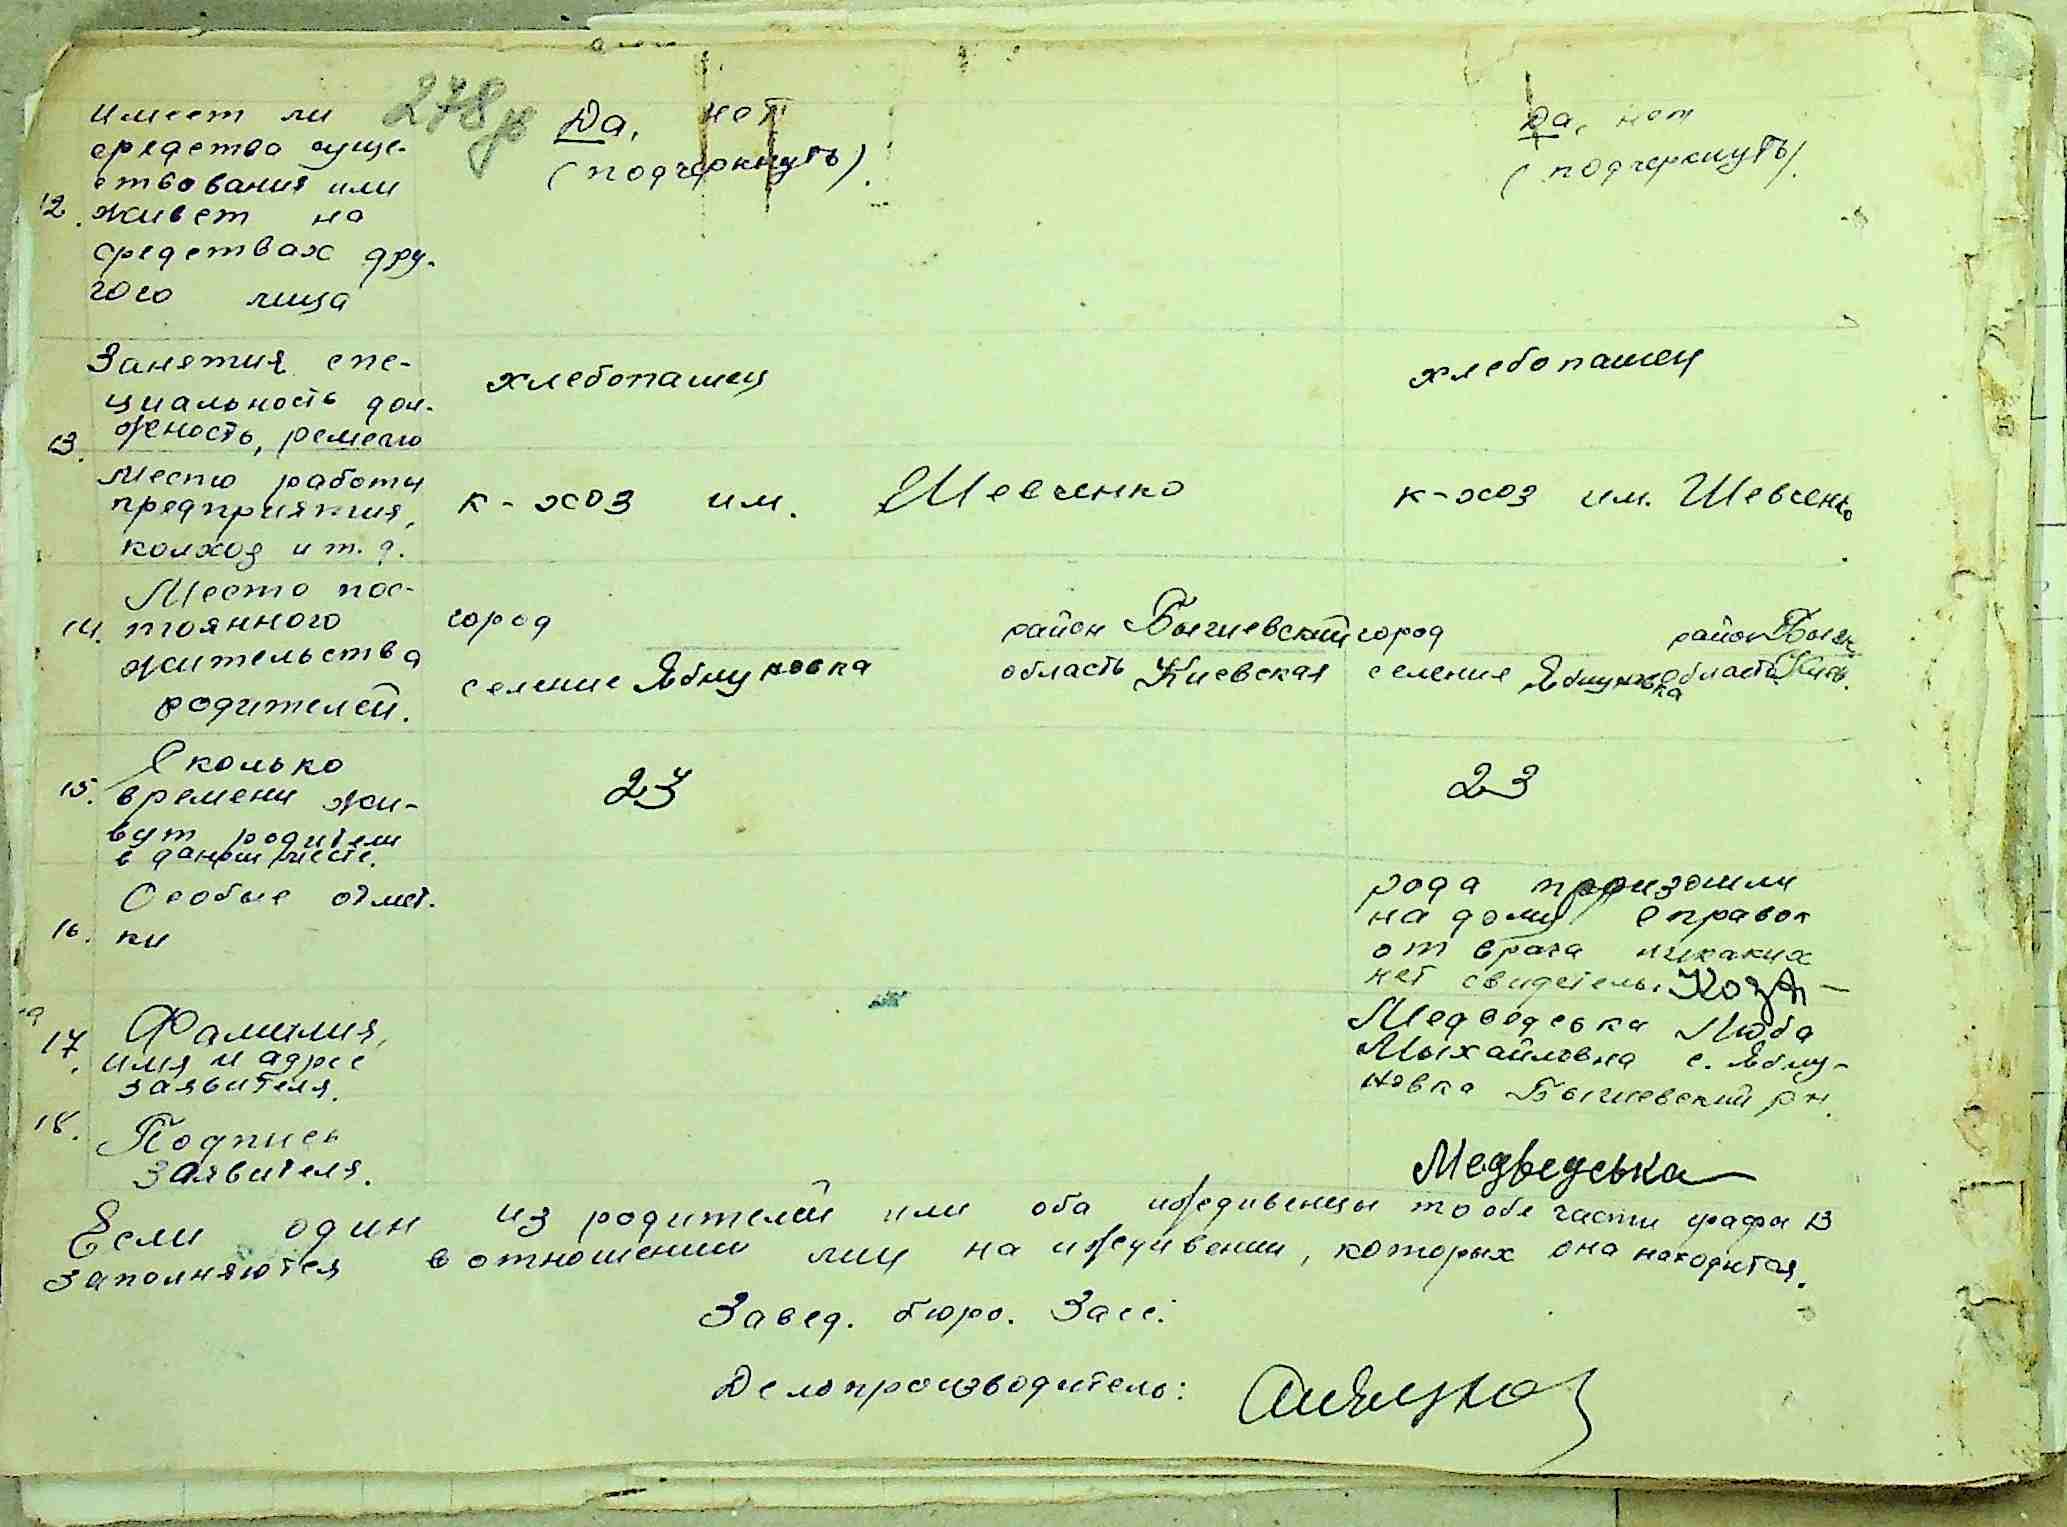 278
Имеет ли
средства суще-
ствования или
12. живет на
средствах дру-
гого лица
Да, нет
(подчеркнуть).
Да, нет
(подчеркнуть).
Занятия спе-
циальность дол-
жность, ремесло
хлебопашец
хлебопашец
13.
Место работы
предприятия,
колхоз и т. д.
к-хоз им. Шевченко
к-хоз им. Шевченко
Место пос-
14. тоянного
жительства
родителей.
город район Бышевский
селение Яблуновка область Киевская
город район Быш
селение Яблуновка область Киев.
Сколько
15. времени жи-
вут родители
в даном месте.
23
23
Особые отмет-
16. ки
рода произошли
на дому справок
от врача никаких
нет свидетель.
17. Фамилия,
имя и адрес
заявителя.
Медведська Люба
Мыхайловна с. Яблу-
новка Бышевский рн.
18. Подпись
заявителя.
Медведська
Если один из родителей или оба иждивенцы то обе части графы 13
заполняются в отношении лиц на иждивении, которых она находится.
Завед. бюро. Загс:
Делопроизводитель: